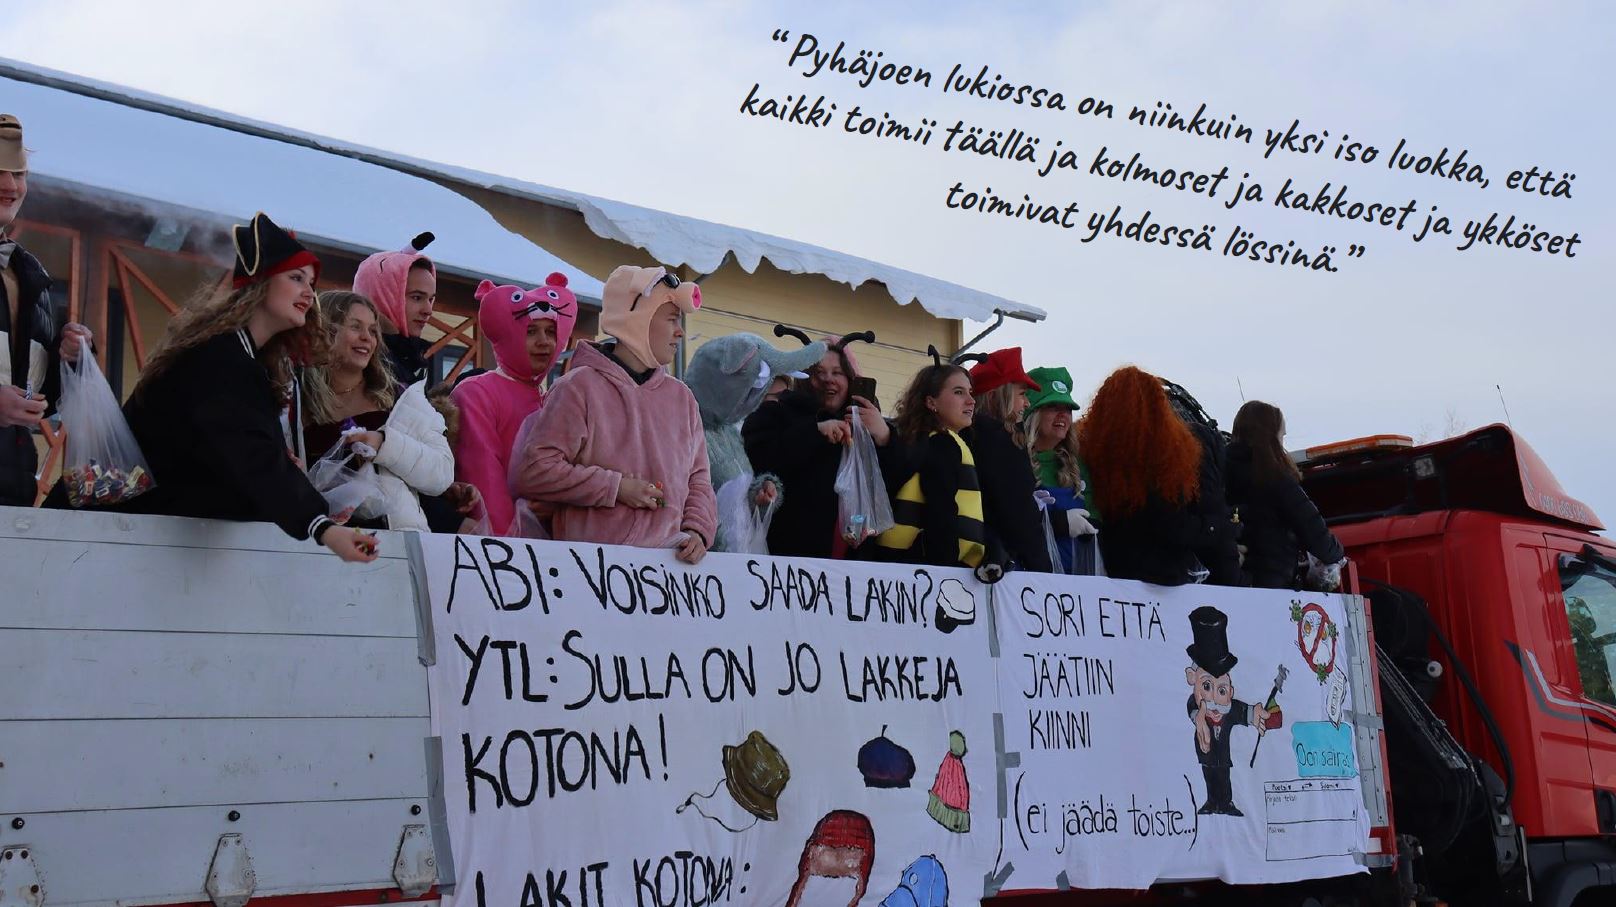 “Pyhäjoen lukiossa on niinkuin yksi iso luokka, että
kaikki toimii täällä ja kolmoset ja kakkoset ja ykköset
toimivat yhdessä lössinä.”
ABI: VOISINKO SAADA LAKIN?
YTL: SULLA ON JO LAKKEJA
KOTONA!
LAKIT KOTONA:
SORI ETTÄ
JÄÄTIIN
KIINNI
(ei jäädä toiste...)
Oon sairas